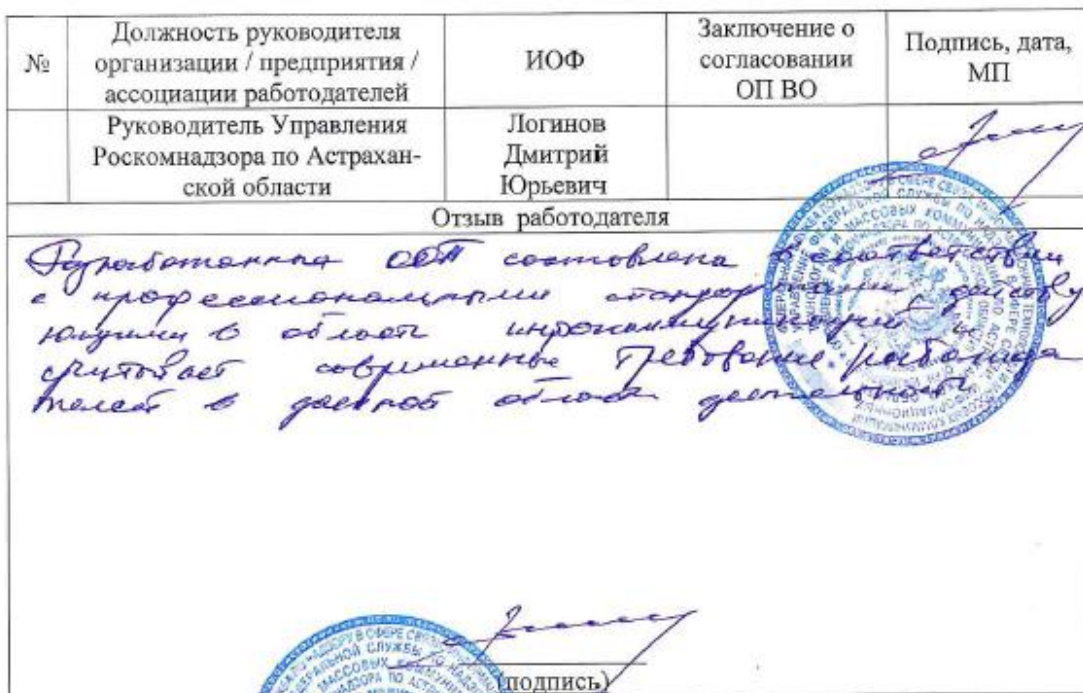 №
Должность руководителя
организации / предприятия /
ассоциации работодателей
ИОФ
Заключение о
согласовании
ОП ВО
Подпись, дата,
МП
Руководитель Управления
Роскомнадзора по Астрахан-
ской области
Логинов
Дмитрий
Юрьевич
Отзыв работодателя
Разработанная ООП составлена в соответствии
с профессиональными стандартами действу
ющими в области инфокоммуникаций и
учитывает современные требование работода
телей в данной области деятельности
(подпись)